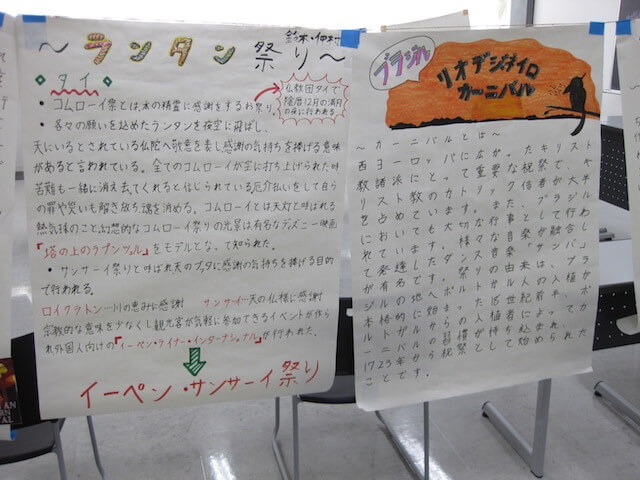 ～ランタン祭り～
鈴木・仲村
◇タイ◇
・コムローイ祭とは、水の精霊に感謝をするお祭り。
仏教国タイで
陰暦12月の満月
の夜に行われる
・各々の願いを込めたランタンを夜空に飛ばし、
天にいるとされている仏陀へ敬意を表し感謝の気持ちを捧げる意味
があると言われている。全てのコムローイが空に打ち上げられた時
苦難も一緒に消え去てくれると信じられている厄介払いをして自ら
の罪や災いも解き放ち魂を清める。コムローイとは天灯と呼ばれる
熱気球のこと幻想的なコムローイ祭りの光景は有名なディズニー映画
「塔の上のラプンツェル」をモデルとなって知られた。
・サンサーイ祭りと呼ばれ天のブッダに感謝の気持ちを捧げる目的
で行われる。
ロイクラトン…川の恵みに感謝 サンサーイ…天の仏様に感謝
宗教的な意味を少なくし観光客が気軽に参加できるイベントが作ら
れ外国人向けの「イーペン・ランナー・インターナショナル」が行われた。
イーペン・サンサーイ祭り
ブラジル
リオデジャネイロ
カーニバル
～カーニバルとは～
西ヨーロッパになかったキリスト
教諸派にとって重要な祝祭で、キ
リスト教のカトリック信者が大半
を占めています。また、ブラジル
においても大切な行事として行わ
れています。様々な音楽が融合し
て発達したダンス音楽「サンバ」
が有名です。祭りの由来は、ブラ
ジルの地へポルトガル人の入植が
本格的に始まった16世紀前半、ポ
ルトガルからの入植者によってカ
ーニバルの習慣が持ち込まれ、
1723年から祝祭として始められた
ことです。